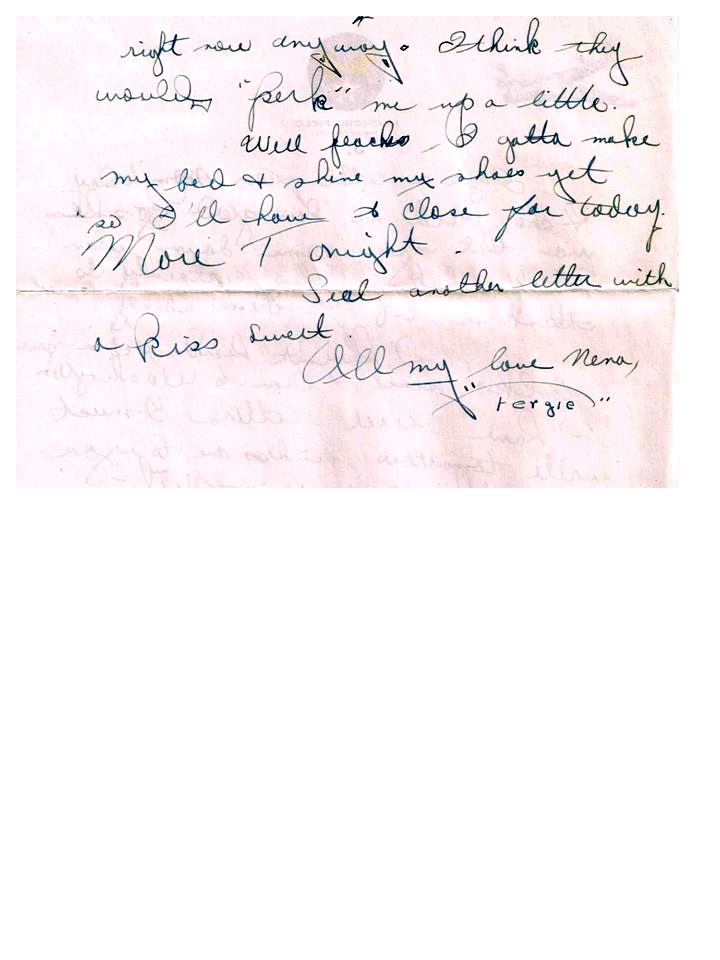 right now anyway. I think they
would "perk" me up a little.
Well peaches, I gotta make
my bed & shine my shoes yet
so I'll have to close for today.
More Tonight.
Seal another letter with
a kiss sweet.
All my love Nena,
"Fergie"